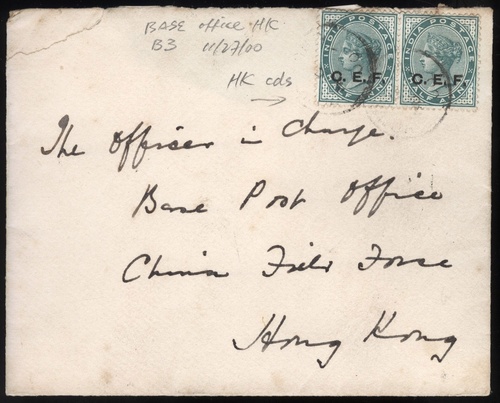 BASE office HK
B3 11/27/00
HK cds
INDIA POSTAGE INDIA POSTAGE
C. E. F. C. E. F.
HALF ANNA HALF ANNA
The Officer in Charge.
Base Post Office
China Field Force
Hong Kong